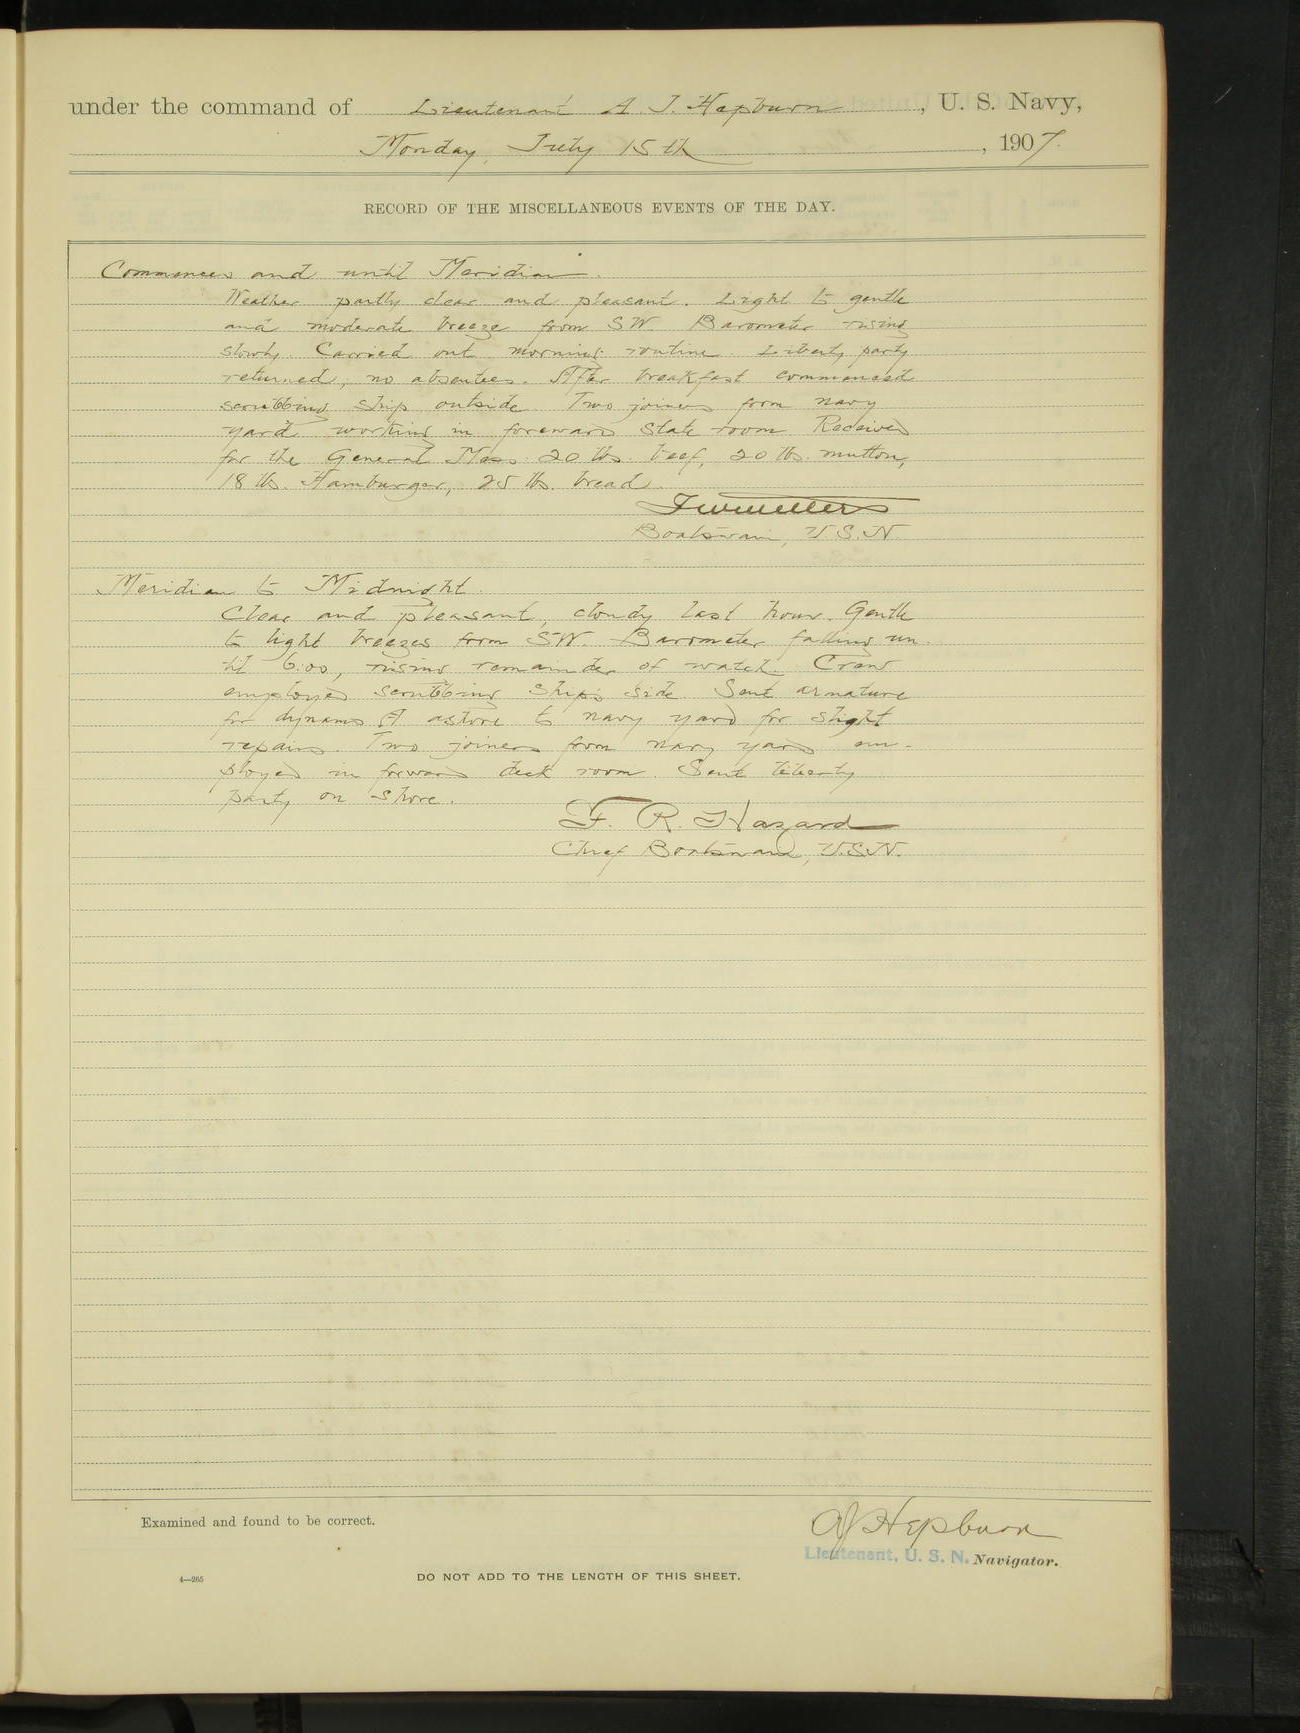 under the command of Lieutenant A. J. Hepburn, U. S. Navy,
Monday, July 15th, 1907.
RECORD OF THE MISCELLANEOUS EVENTS OF THE DAY.
Commences and until Meridian.
Weather partly clear and pleasant. Light to gentle
and moderate breeze from SW. Barometer rising
slowly. Carried out morning routine. Liberty party
returned, no absentees. After breakfast commenced
scrubbing ship outside. Two joiners from navy
yard working in foreward state room Received
for the General Mess: 20 lbs. beef, 20 lbs. mutton,
18 lbs. Hamburger, 25 lbs. bread.
Boatswain, U.S.N.
Meridian to Midnight.
Clear and pleasant, cloudy last hour. Gentle
to light breezes from SW. Barometer falling un-
til 6:00, rising remainder of watch. Crew
employed scrubbing ship's side. Sent armature
for dynamo A ashore to navy yard for slight
repairs. Two joiners from navy yard em-
ployed in forward deck room. Sent liberty
party on shore.
F. R. Hazard
Chief Boatswain, U.S.N.
Examined and found to be correct.
A J Hepburn
Lieutenant, U. S. N. Navigator.
4—265
DO NOT ADD TO THE LENGTH OF THIS SHEET.